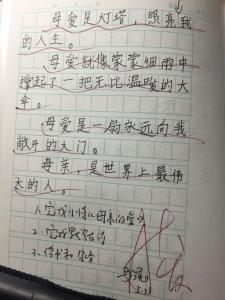 母爱是灯塔，照亮我
的人生。
母爱就像家蒙细雨中
撑起了一把无比温暖的大
伞。
母爱是一扇永远向我
敞开的大门。
母亲，是世界上最伟
大的人。
1、完成小诗《母亲的爱》
2、完成
3、